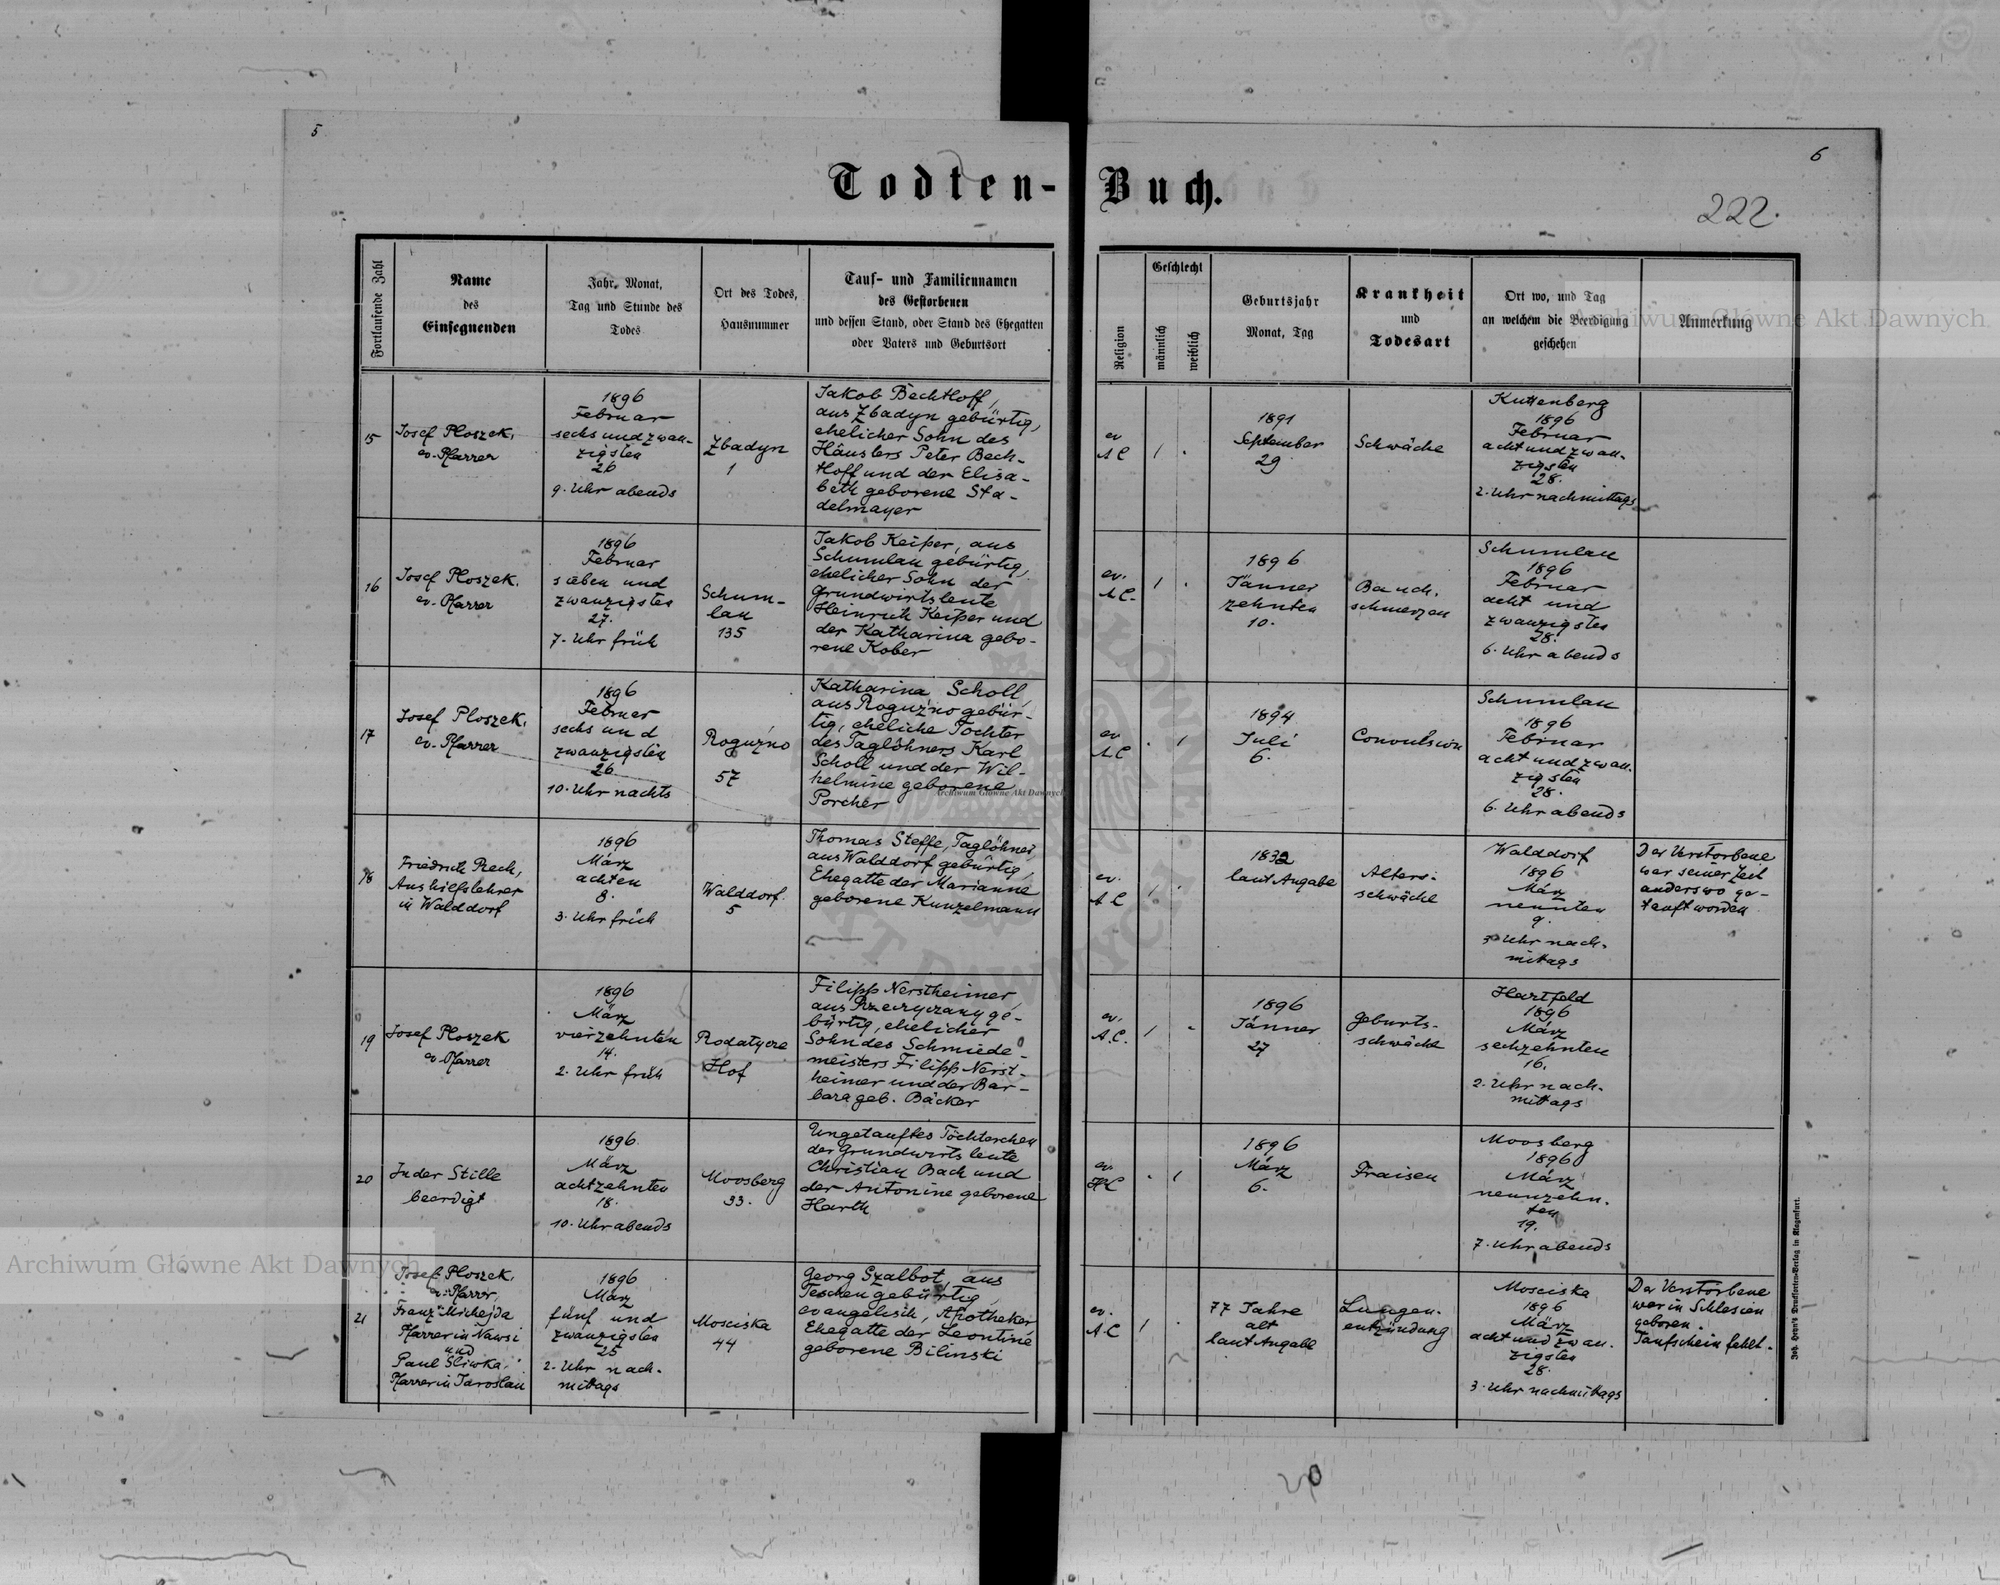 5
6
Todten-Buch.
222.
Fortlaufende Zahl
Name
des
Einsegnenden
Jahr, Monat,
Tag und Stunde des
Todes
Ort des Todes,
Hausnummer
Tauf- und Familiennamen
des Gestorbenen
und dessen Stand, oder Stand des Ehegatten
oder Vaters und Geburtsort
Religion
Geschlecht
männlich
weiblich
Geburtsjahr
Monat, Tag
Krankheit
und
Todesart
Ort wo, und Tag
an welchem die Beerdigung
geschehen
Anmerkung
15
Josef Ploszek,
ev. Pfarrer
1896
Februar
sechs und zwan-
zigsten
26
9. Uhr abends
Zbadyn
1
Jakob Bechtloff,
aus Zbadyn gebürtig,
ehelicher Sohn des
Häuslers Peter Bech-
tloff und der Elisa-
beth geborene Sta-
delmayer
ev
A C
1 .
1891
September
29.
Schwäche
Kuttenberg
1896
Februar
acht und zwan-
zigsten
28.
2. Uhr nachmittags
16
Josef Ploszek.
ev. Pfarrer
1896
Februar
sieben und
zwanzigsten
27.
7. Uhr früh
Schum-
lau
135
Jakob Keiper, aus
Schumlau gebürtig,
ehelicher Sohn der
Grundwirtsleute
Heinrich Keiper und
der Katharina gebo-
rene Kober
ev.
A C.
1 .
1896
Jänner
zehnten
10.
Bauch.
schmerzen
Schumlau
1896
Februar
acht und
zwanzigsten
28.
6. Uhr abends
17
Josef Ploszek.
ev. Pfarrer
1896
Februar
sechs und
zwanzigsten
26
10. Uhr nachts
Roguźno
57
Katharina Scholl,
aus Roguźno gebür-
tig, eheliche Tochter
des Taglöhners Karl
Scholl und der Wil-
helmine geborene
Porcher
ev
A.C
. 1
1894
Juli
6.
Convulsion
Schumlau
1896
Februar
acht und zwan.
zigsten
28.
6. Uhr abends
18
Friedrich Rech,
Aushilfslehrer
in Walddorf
1896
März
achten
8.
3. Uhr früh
Walddorf.
5
Thomas Steffe, Taglöhner,
aus Walddorf gebürtig,
Ehegatte der Marianne
geborene Kunzelmann
ev.
A C
1 .
1832
laut Angabe
Alters-
schwäche
Walddorf
1896
März
neunten
9.
3 Uhr nach.
mittags
Der Verstorbene
war seiner Zeit
anderswo ge-
tauft worden
19
Josef Ploszek
ev. Pfarrer
1896
März
vierzehnten
14.
2. Uhr früh
Rodatycze
Hof
Filipp Nerstheimer
aus Rzeczyczany ge-
bürtig, ehelicher
Sohn des Schmiede-
meisters Filipp Nerst-
heimer und der Bar-
bara geb. Bäcker
ev.
A.C.
1 .
1896
Jänner
27
Geburts-
schwäche
Hartfeld
1896
März
sechzehnten
16.
2. Uhr nach.
mittags
20
In der Stille
beerdigt
1896.
März
achtzehnten
18.
10. Uhr abends
Moosberg
33.
Ungetauftes Töchterchen
der Grundwirtsleute
Christian Bach und
der Antonine geborene
Harth
ev.
. 1
1896
März
6.
Fraisen
Moosberg
1896
März
neunzehn.
ten
19.
7. Uhr abends
21
Josef Ploszek.
ev. Pfarrer,
Franz Michejda
Pfarrer in Nawsi
und
Paul Sliwka,
Pfarrer in Jaroslau
1896
März
fünf und
zwanzigsten
25
2. Uhr nach.
mittags
Mosciska
44
Georg Szalbot, aus
Teschen gebürtig,
evangelisch, Apotheker
Ehegatte der Leontine
geborene Bilinski
ev.
A C
1 .
77 Jahre
alt
laut Angabe
Lungen-
entzündung
Mosciska
1896
März
acht und zwan.
zigsten
28.
3. Uhr nachmittags
Der Verstorbene
war in Schlesien
geboren.
Taufschein fehlt.
Joh. Heyn's Drucksorten-Verlag in Klagenfurt.
Archiwum Główne Akt Dawnych
Archiwum Główne Akt Dawnych
Archiwum Główne Akt Dawnych